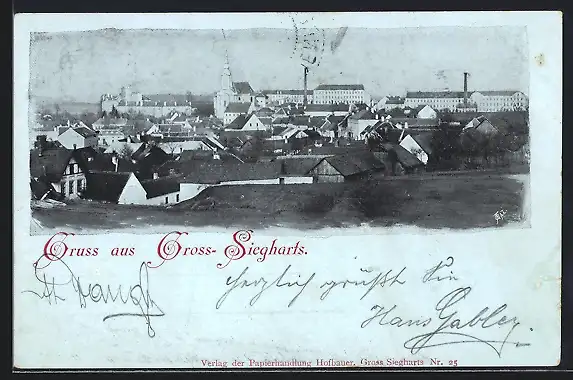 Gruss aus Gross-Siegharts.
herzlich grüßt Sie
Hans Gabler
Verlag der Papierhandlung Hofbauer, Gross Siegharts Nr. 25